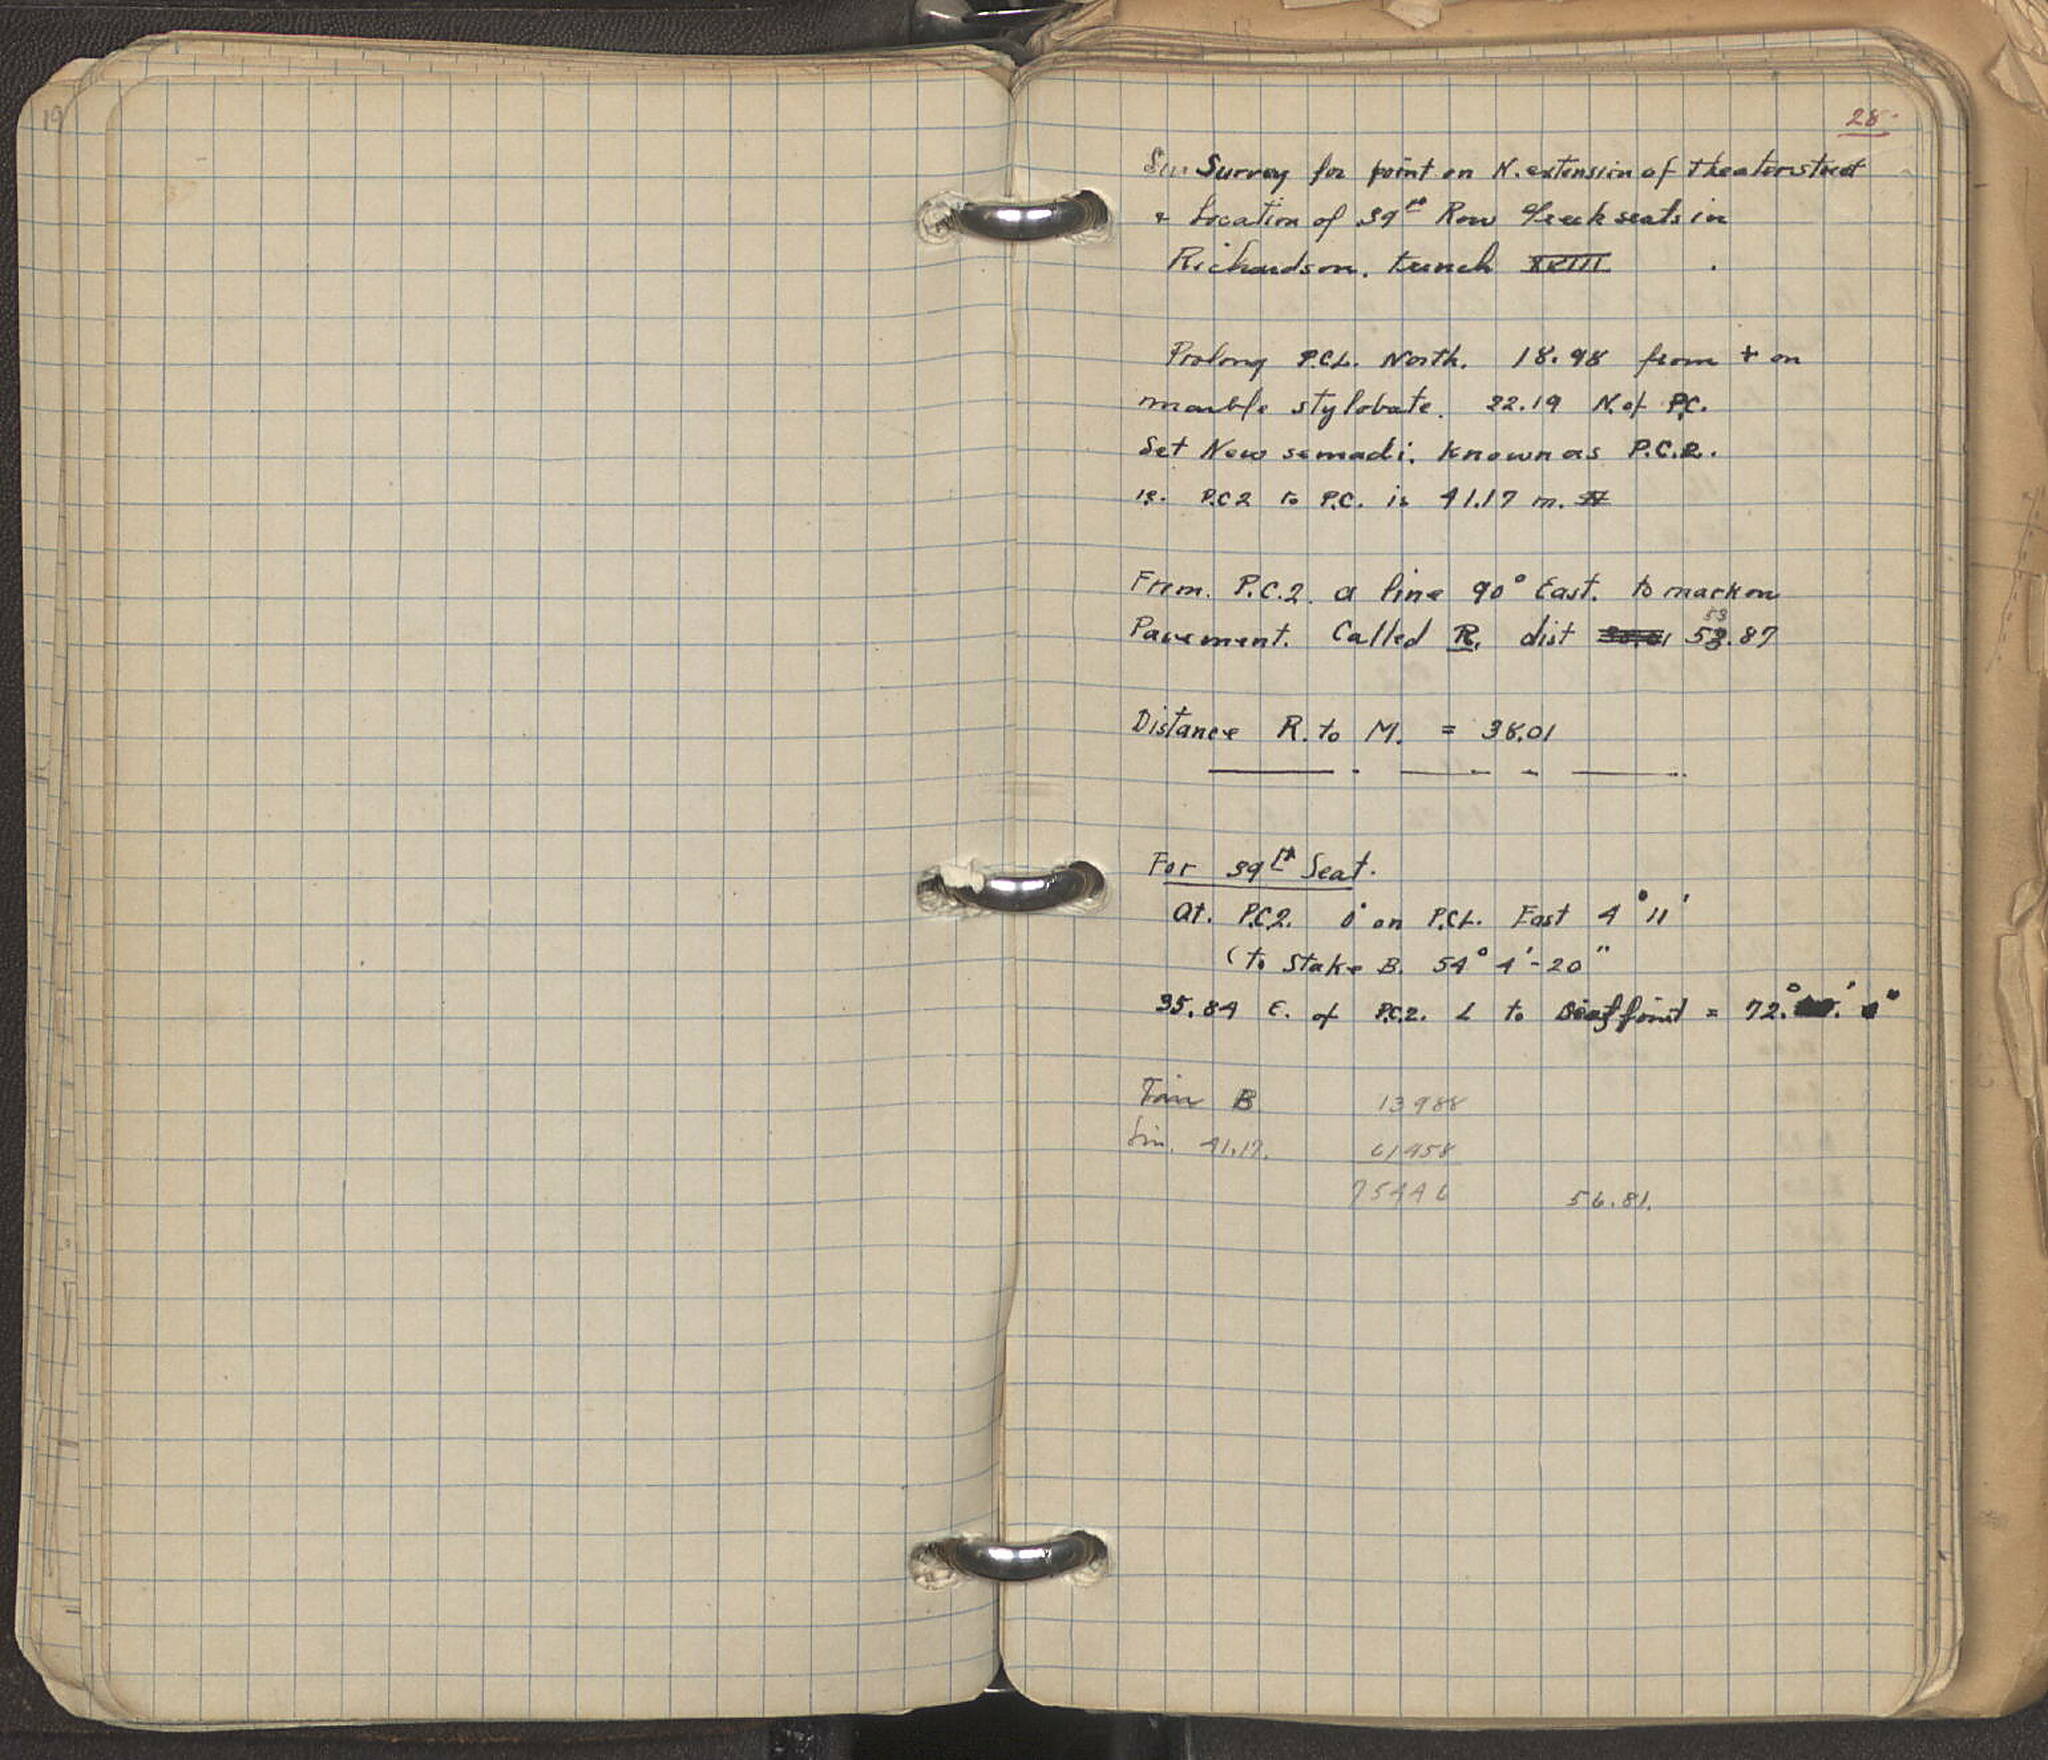 19
28.
Sur Survey for point on N. extension of Theaterstreet
& Location of 39th Row Greek seats in
Richardson. trench XVIII
Prolong P.C.L. North. 18.98 from + on
marble stylobate. 22.19 N. of P.C.
Set New semadi. known as P.C.2.
ie. P.C2 to P.C. is 41.17 m.
From. P.C.2. a line 90° East. to mark on
53
Pavement. Called R. dist 53.87
Distance R. to M. = 38.01
For 39th Seat.
At. P.C2. 0° on P.C.L. East 4° 11'
( to Stake B. 54° 4'-20"
35.84 E. of P.C.2. L to point = 72.°
Tan B 13988
Sin. 41.17. 61458
75446 56.81.